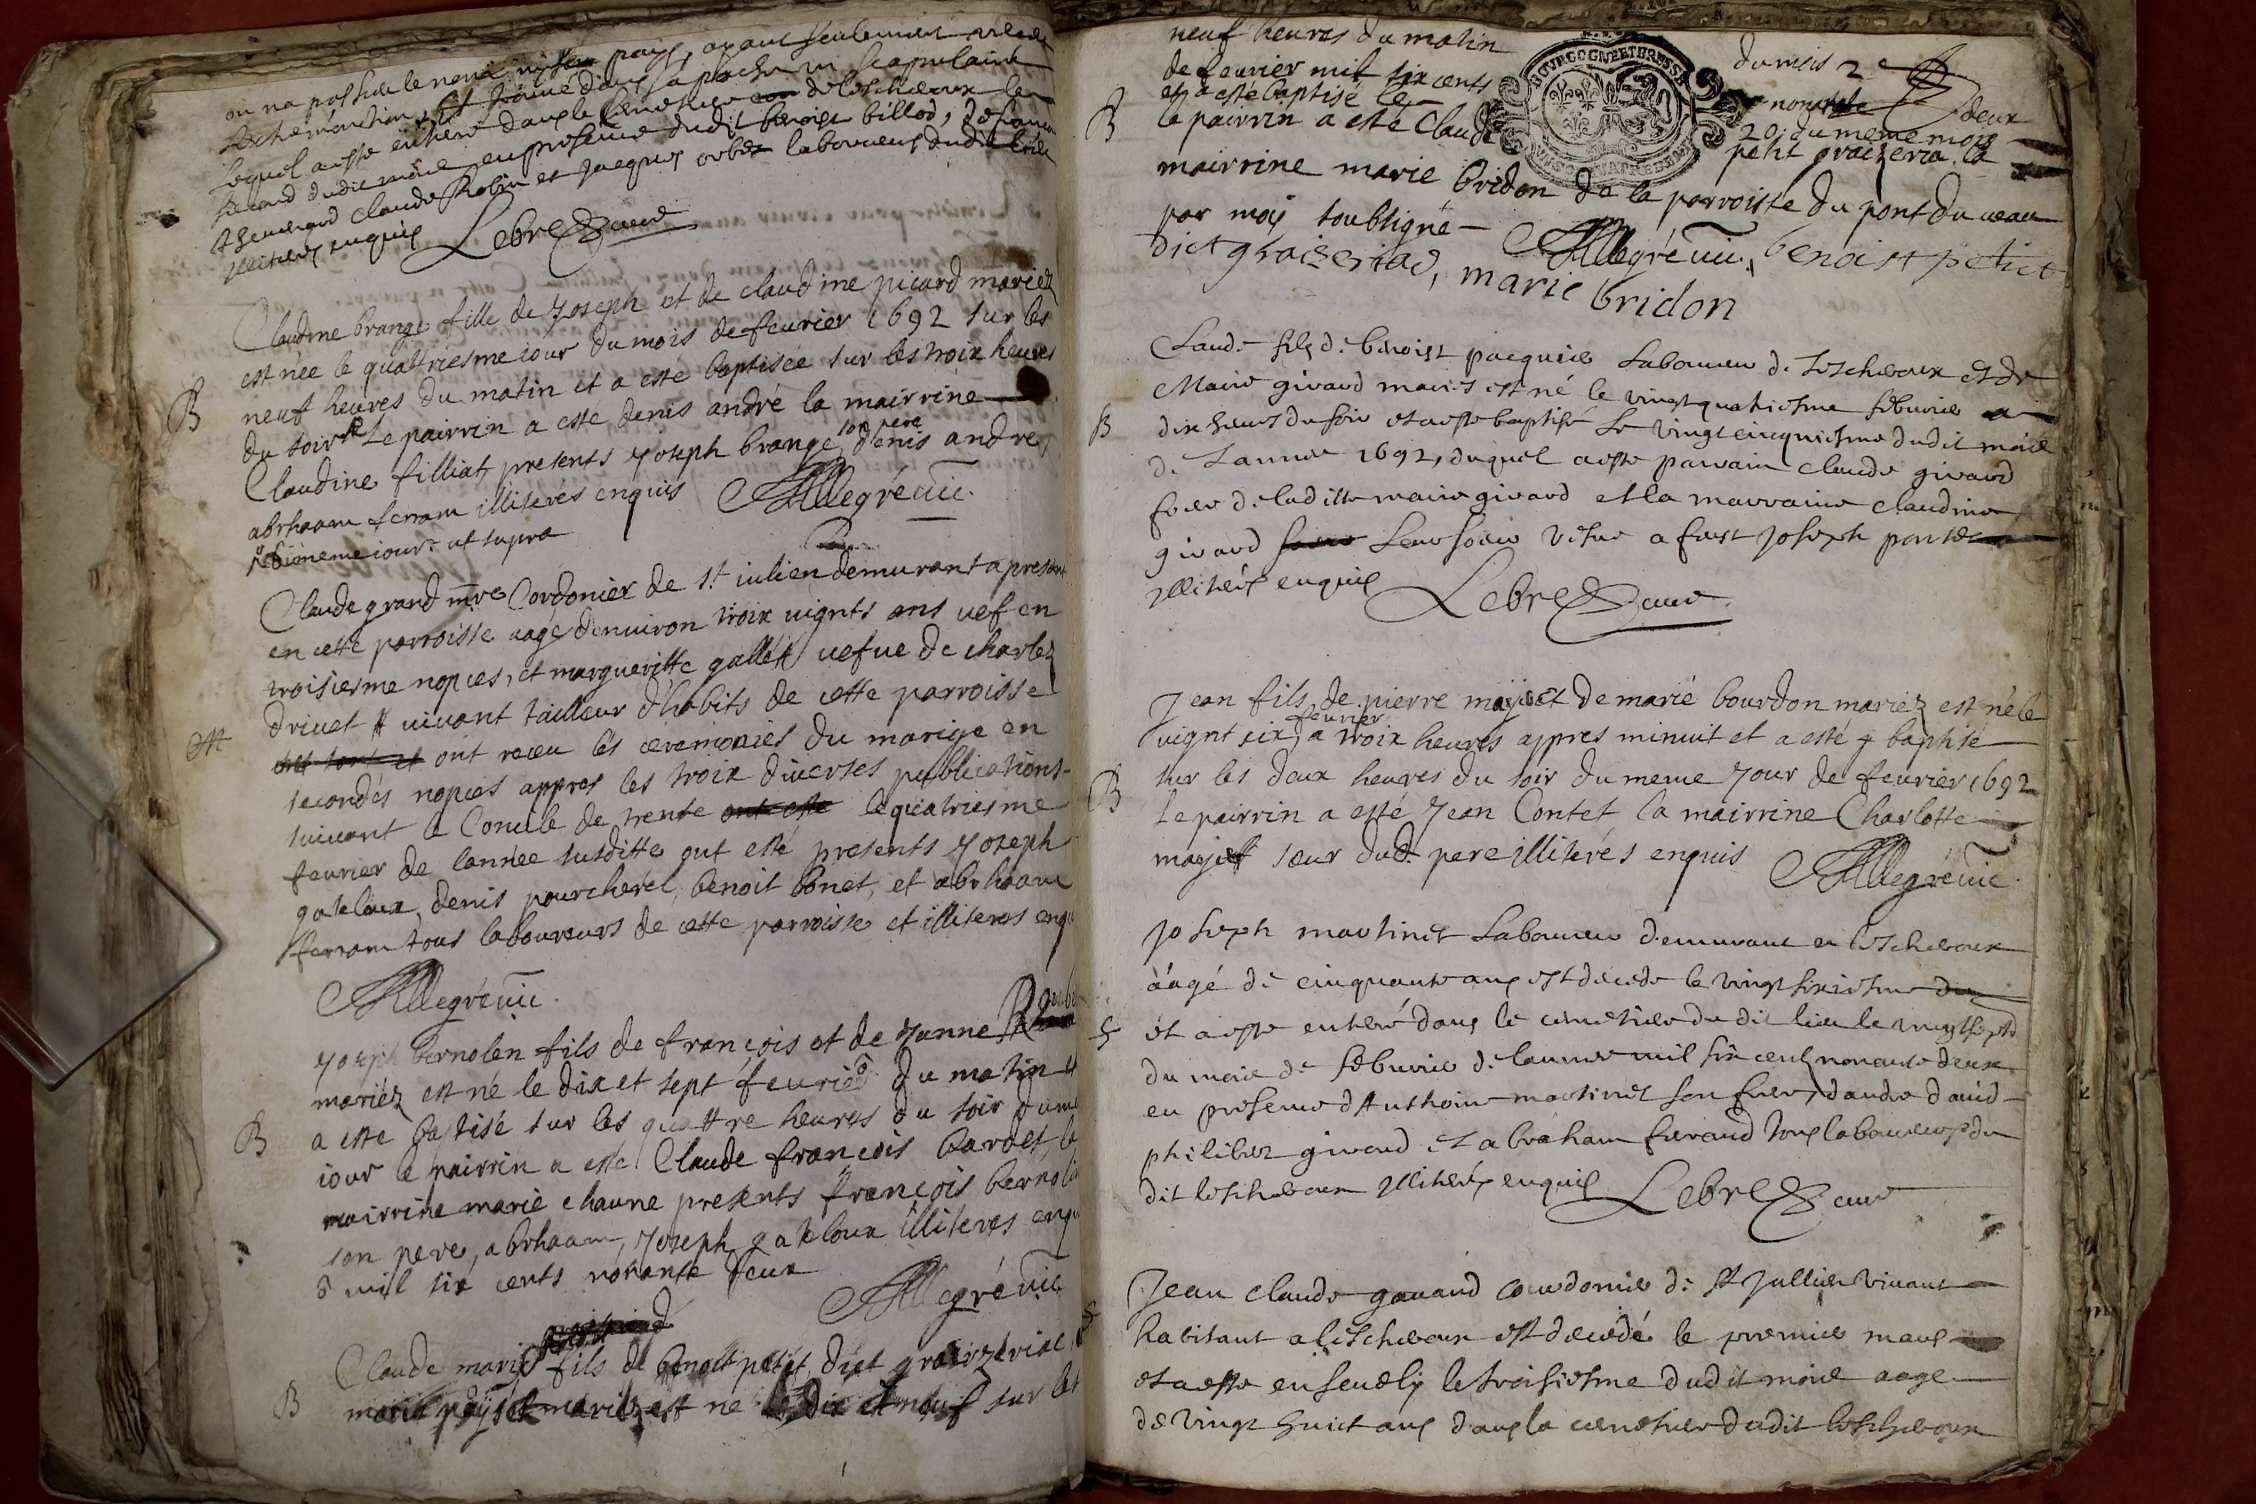 on na pas sceu le nom ny son pays, ayant seulement
trouvé dans sa poche un scapulaire
lequel a esté enterré dans le cimetiere de Lescheroux le
second dudit mois en presence dudit benoist billod,
Claude Robin et Jacques laboureurs dudit lieu
illiterés enquis Lebre cure
Claudine brange fille de Joseph et de claudine picard mariez
est née le quattriesme iour du mois de feurier 1692 sur les
B neuf heures du matin et a esté baptisée sur les troix heures
du soir Le pairrin a esté denis andré la mairrine
Claudine filliat presents Joseph brange son pere denis andre,
abrhaam ferram illiterés enquis Allegré vic.
meme iour ut supra
Claude grand mre Cordonier de st iulien demurant a present
en cette parroisse aagé denuiron troix uignts ans uef en
troisiesme nopces, et margueritte gallet uefue de charlez
driuet uiuant tailleur d'habits de cette parroisse
M ont receu les ceremonies du marige en
secondes nopces appres les troix diuerses publications
suiuant le Concile de trente le quatriesme
feurier de l'annee susditte ont esté presents Joseph
gateloux, denis pourcherel, benoit bonet, et abrhaam
ferram tous laboureurs de cette parroisse et illiteres enquis
Allegré vic.
Joseph bernolen fils de francois et de Janne
mariez est né le dix et sept feurier du matin et
B a esté baptisé sur les quattre heures du soir dume
iour le pairrin a esté Claude francois bardet la
mairrine marie chaune presents francois bernolin
son pere, abrhaam, Joseph gateloux illiteres enquis
mil six cents nonante deux
Allegré vic
Claude marie fils de benoit petit dict graizeriat,
B marie mariez est né le dix et neuf sur les
neuf heures du matin du mois
de feurier mil six cents nonante deux
et a esté baptisé le 20 du meme mois
B le pairrin a esté Claude petit graizeria la
mairrine marie bridon de la parroisse du pont du ueau
par moy soubsigné Allegré vic. benoist petict
dict graiseriad, marie bridon
Claude fils de benoist pacquier Laboureur de Lescheroux et de
Marie girard mariés est né le vingt quatriesme feburier a
B dix heures du soir et a esté baptisé le vingt cinquiesme dudit mois
de Lannee 1692, duquel a esté parrain claude girard
frere de laditte marie girard et la marraine claudine
girard Leur soeur Joseph
illiterés enquis Lebre cure
Jean fils de pierre mayet et de marie bourdon mariez est né le
uignt six feurier a troix heures appres minuit et a esté baptisé
B sur les deux heures du soir du meme jour de feurier 1692
le pairrin a esté Jean Contet la mairrine Charlotte
mayet soeur dud. pere illiterés enquis Allegré vic.
Joseph martinet Laboureur demurant a lescheroux
aagé de cinquante ans est decede le vingt sixiesme
S et a esté enterré dans le cimetiere du dit lieu le vingt sept
du mois de feburier de lannee mil six cent nonante deux
en presence d'Anthoine martinet son frere, dandre dauid
philibert girard et abraham ferrand tous laboureurs du
dit lescheroux illiterés enquis Lebre cure
Jean claude gauand courdonnier de st Jullien viuant
S habitant a lescheroux est decedé le premier mars
et a esté enseuely le troisiesme dudit mois aage
de vingt huict ans dans le cimetiere dudit lescheroux